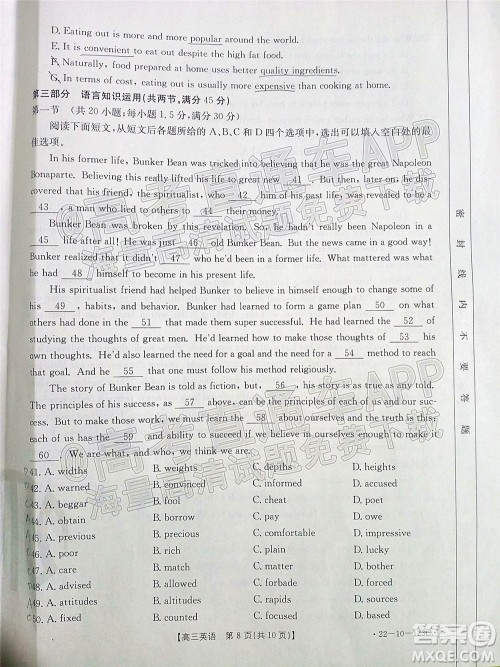 D. Eating out is more and more popular around the world.
E. It is convenient to eat out despite the high fat food.
F. Naturally, food prepared at home uses better quality ingredients.
G. In terms of cost, eating out is usually more expensive than cooking at home.
第三部分 语言知识运用(共两节,满分45分)
第一节 (共20小题;每小题1.5分,满分30分)
阅读下面短文,从短文后各题所给的A、B、C和D四个选项中,选出可以填入空白处的最
佳选项。
In his former life, Bunker Bean was tricked into believing that he was the great Napoleon
Bonaparte. Believing this really lifted his life to great new 41 until he 42 that
he discovered that his friend, the spiritualist, who had given him this great belief was a
43 , a man who lied to others to 44 their money.
Bunker Bean was broken by this revelation. So, he hadn't been Napoleon in a
45 life after all! He was just 46 old Bunker Bean. But wait a minute! Bunker
Bean realized that it didn't 47 who he was in his former life. What mattered was what
he 48 himself to become in his present life.
His spiritualist friend had helped Bunker to believe in himself enough to change some of
his 49 habits, behaviors and thoughts. He had learned to game plan 50 on what
others had done that made them super successful. He had learned to 51 his
own thoughts by 52 other people's thoughts to make those thoughts of 53 his
own thoughts. He'd also learned the need for goal and the need for a 54 method to
reach that goal. And he 55 that one must follow his method religiously.
The story of Bunker Bean is fiction, but, 56 , the story is as true as any told.
The principles of his success, as 57 above, can be used by all who wish to enjoy
success. But to make those principles work, we must learn the 58 about ourselves and the truth is this:
each of us has the 59 and capability of amazing success if we believe ourselves to make it
60 . We are what, and who, we think we are.
41. A. widths B. weights C. depths D. heights
42. A. warned B. convinced C. informed D. discovered
43. A. advanced B. fool C. cheat D. poet
44. A. obtain B. borrow C. pay D. avoid
45. A. previous B. precious C. comfortable D. impressive
46. A. poor B. rich C. plain D. lucky
47. A. care B. mind C. matter D. affect
48. A. advised B. allowed C. forbade D. forced
49. A. edited B. inspired C. admired D. limited
50. A. fixed B. founded C. focused D. based
【高三英语 第8页(共10页)】
·22-10-
密封线内不要答题
高考直通车APP
海量高清试题免费下载